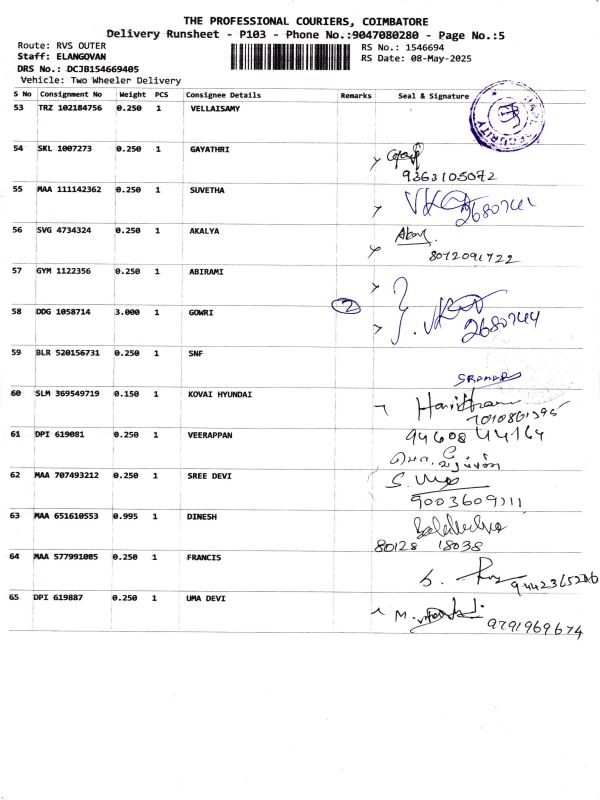 THE PROFESSIONAL COURIERS, COIMBATORE
Delivery Runsheet - P103 - Phone No.:9047080280 - Page No.:5
Route: RVS OUTER
Staff: ELANGOVAN
DRS No.: DCJB154669405
Vehicle: Two Wheeler Delivery
RS No.: 1546694
RS Date: 08-May-2025
S No Consignment No Weight PCS Consignee Details Remarks Seal & Signature
53 TRZ 102184756 0.250 1 VELLAISAMY
SECURITY
54 SKL 1007273 0.250 1 GAYATHRI
9363105072
55 MAA 111142362 0.250 1 SUVETHA
56 SVG 4734324 0.250 1 AKALYA
8072091722
57 GYM 1122356 0.250 1 ABIRAMI
58 DDG 1058714 3.000 1 GOWRI 2
2680744
59 BLR 520156731 0.250 1 SNF
60 SLM 369549719 0.150 1 KOVAI HYUNDAI
7010861395
61 DPI 619081 0.250 1 VEERAPPAN
94608 44164
62 MAA 707493212 0.250 1 SREE DEVI
9003609111
63 MAA 651610553 0.995 1 DINESH
80128 18038
64 MAA 577991085 0.250 1 FRANCIS
65 DPI 619887 0.250 1 UMA DEVI
9791969674